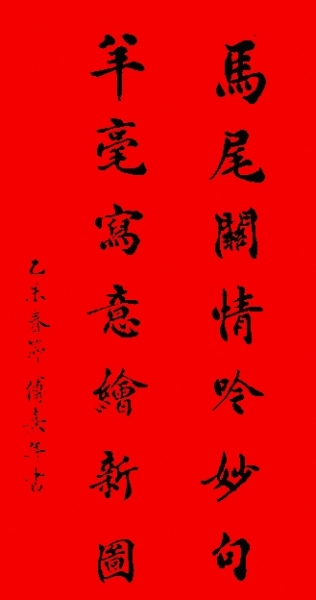 馬尾關情吟妙句
羊毫寫意繪新圖
乙未春節傅喜年書